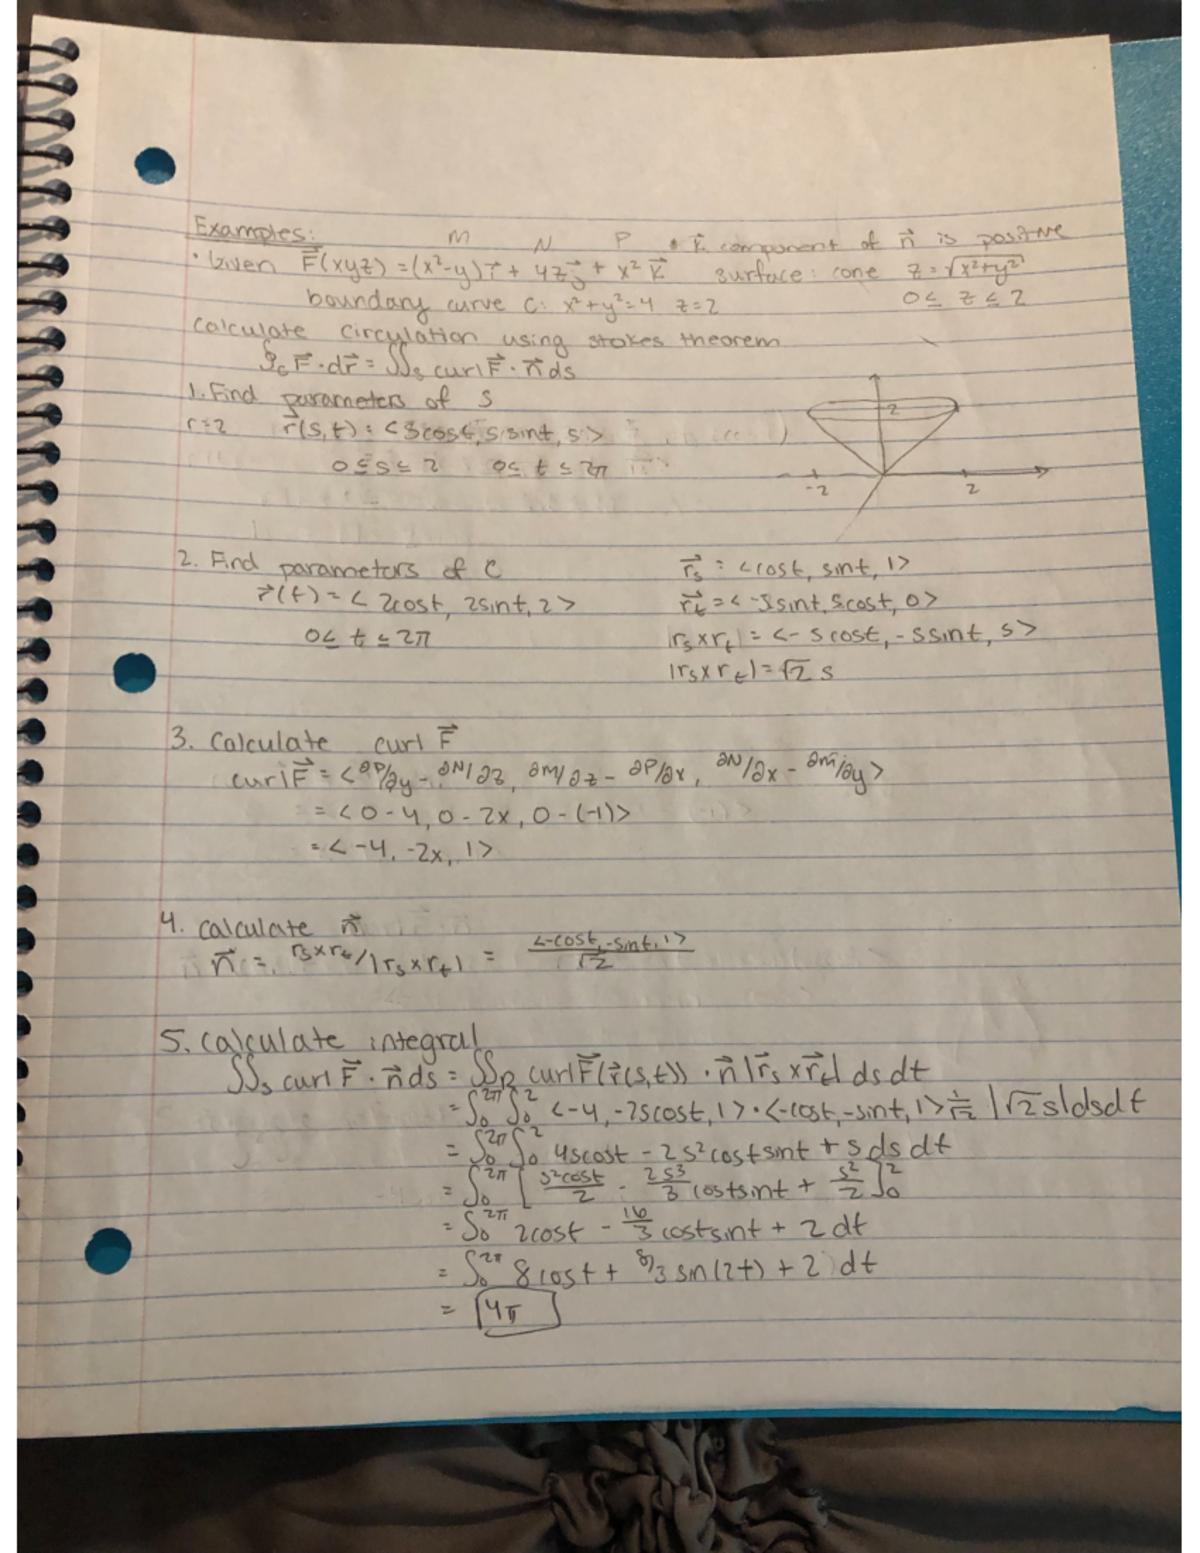 Examples:
M N P • k⃗ component of n⃗ is positive
• Given F⃗(xyz) = (x²-y)i⃗ + 4zj⃗ + x² k⃗ surface: cone z = √(x²+y²)
boundary curve C: x²+y²=4 z=2 0 ≤ z ≤ 2
Calculate circulation using stokes theorem
∮c F⃗·dr⃗ = ∬s curl F⃗ · n⃗ ds
1. Find parameters of S
r=2 r⃗(s,t) = <scost, s sint, s>
0 ≤ s ≤ 2 0 ≤ t ≤ 2π
2
-2 2
2. Find parameters of C
r⃗(t) = < 2cost, 2sint, 2 >
0 ≤ t ≤ 2π
r⃗s = <cost, sint, 1>
r⃗t = < -ssint, scost, 0>
|rs x rt| = <- scost, - ssint, s>
|rs x rt| = √2 s
3. Calculate curl F⃗
curl F⃗ = <∂P/∂y - ∂N/∂z, ∂M/∂z - ∂P/∂x, ∂N/∂x - ∂m/∂y>
= <0 - 4, 0 - 2x, 0 - (-1)>
= < -4, -2x, 1>
4. Calculate n⃗
n⃗ = rs x rt / |rs x rt| = <-cost, -sint, 1> / √2
5. Calculate integral
∬s curl F⃗ · n⃗ ds = ∬R curl F⃗(r⃗(s,t)) · n⃗ |r⃗s x r⃗t| ds dt
= ∫₀^2π ∫₀^2 <-4, -2scost, 1> · <-cost, -sint, 1> 1/√2 |√2 s| ds dt
= ∫₀^2π ∫₀^2 4scost - 2s²costsint + s ds dt
= ∫₀^2π [ s²cost/2 - 2s³/3 costsint + s²/2 ]₀^2
= ∫₀^2π 2cost - 16/3 costsint + 2 dt
= ∫₀^2π 8cost + 8/3 sin(2t) + 2 dt
= 4π